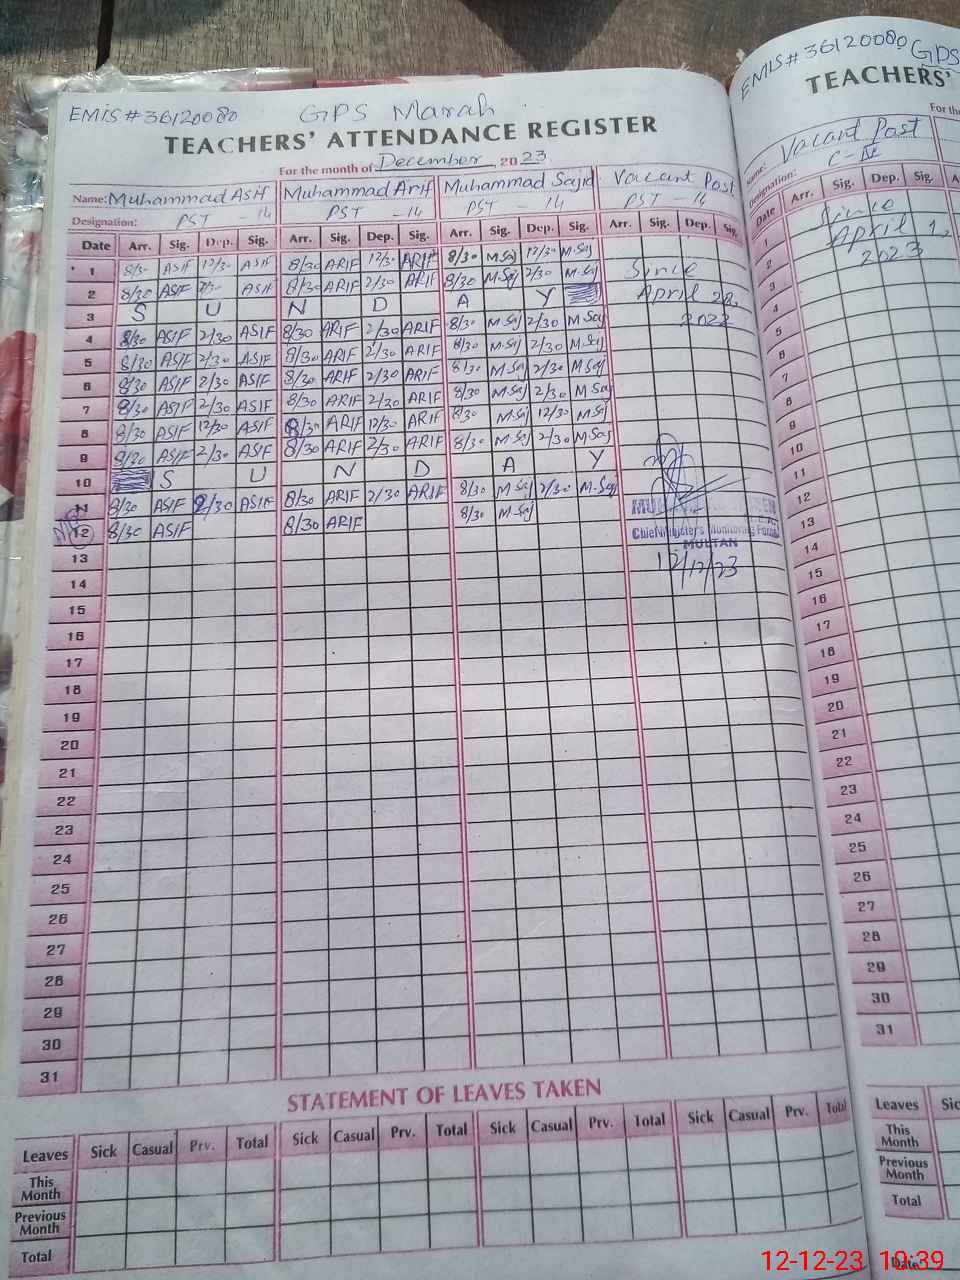 EMIS # 36120080 GPS Marah
TEACHERS' ATTENDANCE REGISTER
For the month of December 2023
Name: Muhammad Asif Muhammad Arif Muhammad Sajid Vacant Post
Designation: PST - 14 PST - 14 PST - 14 PST - 14
Date Arr. Sig. Dep. Sig. Arr. Sig. Dep. Sig. Arr. Sig. Dep. Sig. Arr. Sig. Dep. Sig.
1 8/30 ASIF 12/30 ASIF 8/30 ARIF 12/30 ARIF 8/30 M Saj 12/30 M Saj
2 8/30 ASIF 2/30 ASIF 8/30 ARIF 2/30 ARIF 8/30 M Saj 2/30 M Saj Since
3 S U N D A Y April 28,
4 8/30 ASIF 2/30 ASIF 8/30 ARIF 2/30 ARIF 8/30 M Saj 2/30 M Saj 2022
5 8/30 ASIF 2/30 ASIF 8/30 ARIF 2/30 ARIF 8/30 M Saj 2/30 M Saj
6 8/30 ASIF 2/30 ASIF 8/30 ARIF 2/30 ARIF 8/30 M Saj 2/30 M Saj
7 8/30 ASIF 2/30 ASIF 8/30 ARIF 2/30 ARIF 8/30 M Saj 2/30 M Saj
8 8/30 ASIF 12/30 ASIF 8/30 ARIF 12/30 ARIF 8/30 M Saj 12/30 M Saj
9 8/30 ASIF 2/30 ASIF 8/30 ARIF 2/30 ARIF 8/30 M Saj 2/30 M Saj
10 S U N D A Y
8/30 ASIF 2/30 ASIF 8/30 ARIF 2/30 ARIF 8/30 M Saj 2/30 M Saj
12 8/30 ASIF 8/30 ARIF 8/30 M Saj
Chief Ministers Monitoring Force
MULTAN
12/12/23
13
14
15
16
17
18
19
20
21
22
23
24
25
26
27
28
29
30
31
STATEMENT OF LEAVES TAKEN
Leaves Sick Casual Prv. Total Sick Casual Prv. Total Sick Casual Prv. Total Sick Casual Prv. Total
This Month
Previous Month
Total
EMIS # 36120080 GPS
TEACHERS'
For the
Name: Vacant Post
Designation: C-IV
Date Arr. Sig. Dep. Sig.
1 Since
2 April 1,
3 2023
4
5
6
7
8
9
10
11
12
13
14
15
16
17
18
19
20
21
22
23
24
25
26
27
28
29
30
31
Leaves Sic
This Month
Previous Month
Total
Date
12-12-23 10:39